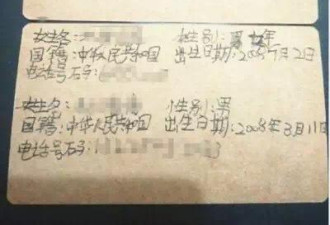 姓名: 性别:男
国籍:中华人民共和国 出生日期:2008年7月2日
电话号石马:
姓名: 性别:男
国籍:中华人民共和国 出生日期:2008年3月11日
电话号石马: 3